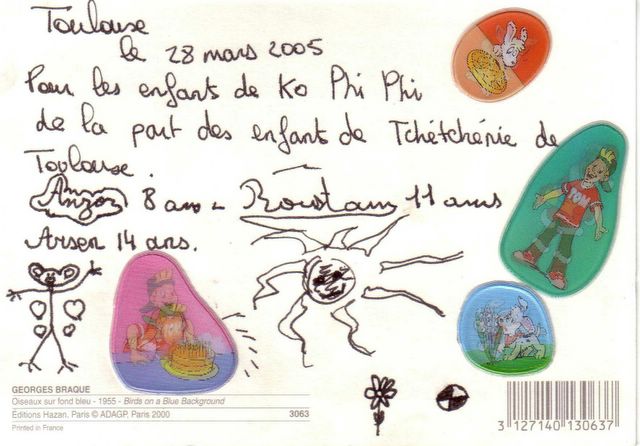 Toulouse
le 28 mars 2005
Pour les enfants de Ko Phi Phi
de la part des enfants de Tchétchénie de
Toulouse.
Anzor 8 ans - Roustam 11 ans
Arsen 14 ans.
TOM
GEORGES BRAQUE
Oiseaux sur fond bleu - 1955 - Birds on a Blue Background
Éditions Hazan, Paris © ADAGP, Paris 2000 3063
Printed in France
3 127140 130637